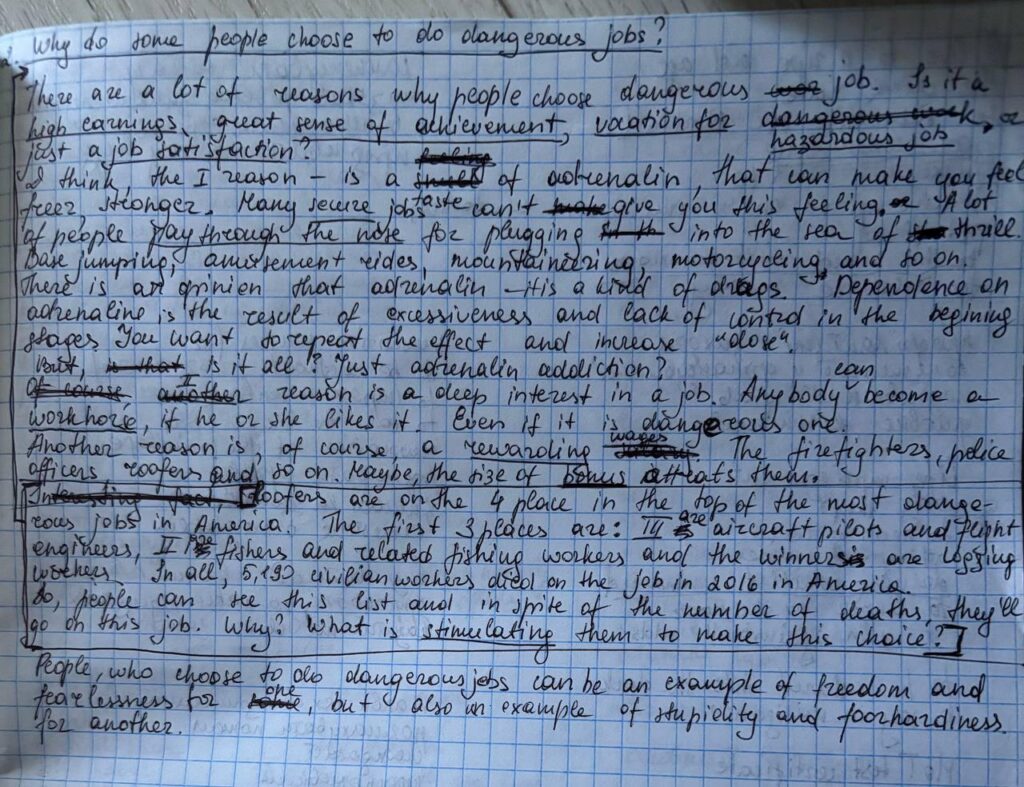 Why do some people choose to do dangerous jobs?
There are a lot of reasons why people choose dangerous job. Is it a
high earnings, great sense of achievement, vocation for dangerous work, or
hazardous job
just a job satisfaction?
feeling
I think, the I reason – is a of adrenalin, that can make you feel
taste
freer, stronger. Many secure jobs can't make give you this feeling. A lot
of people pay through the nose for plugging into the sea of thrill.
Base jumping, amusement rides, mountaineering, motorcycling and so on.
There is an opinion that adrenalin – it is a kind of drugs. Dependence on
adrenaline is the result of excessiveness and lack of control in the begining
stages. You want to repeat the effect and increase "dose".
But, is that Is it all? Just adrenalin addiction?
can
Of course another II reason is a deep interest in a job. Anybody become a
workhorse, if he or she likes it. Even if it is dangerous one.
wages
Another reason is, of course, a rewarding The firefighters, police
officers roofers and so on. Maybe, the size of bonus attrats them.
Interesting fact, Roofers are on the 4 place in the top of the most dange-
rous jobs in America. The first 3 places are: III are aircraft pilots and flight
engineers, II are fishers and related fishing workers and the winners are logging
workers. In all, 5,190 civilian workers died on the job in 2016 in America.
So, people can see this list and in spite of the number of deaths, they'll
go on this job. Why? What is stimulating them to make this choice?
People, who choose to do dangerous jobs can be an example of freedom and
one
fearlessness for some, but also an example of stupidity and foorhardiness
for another.